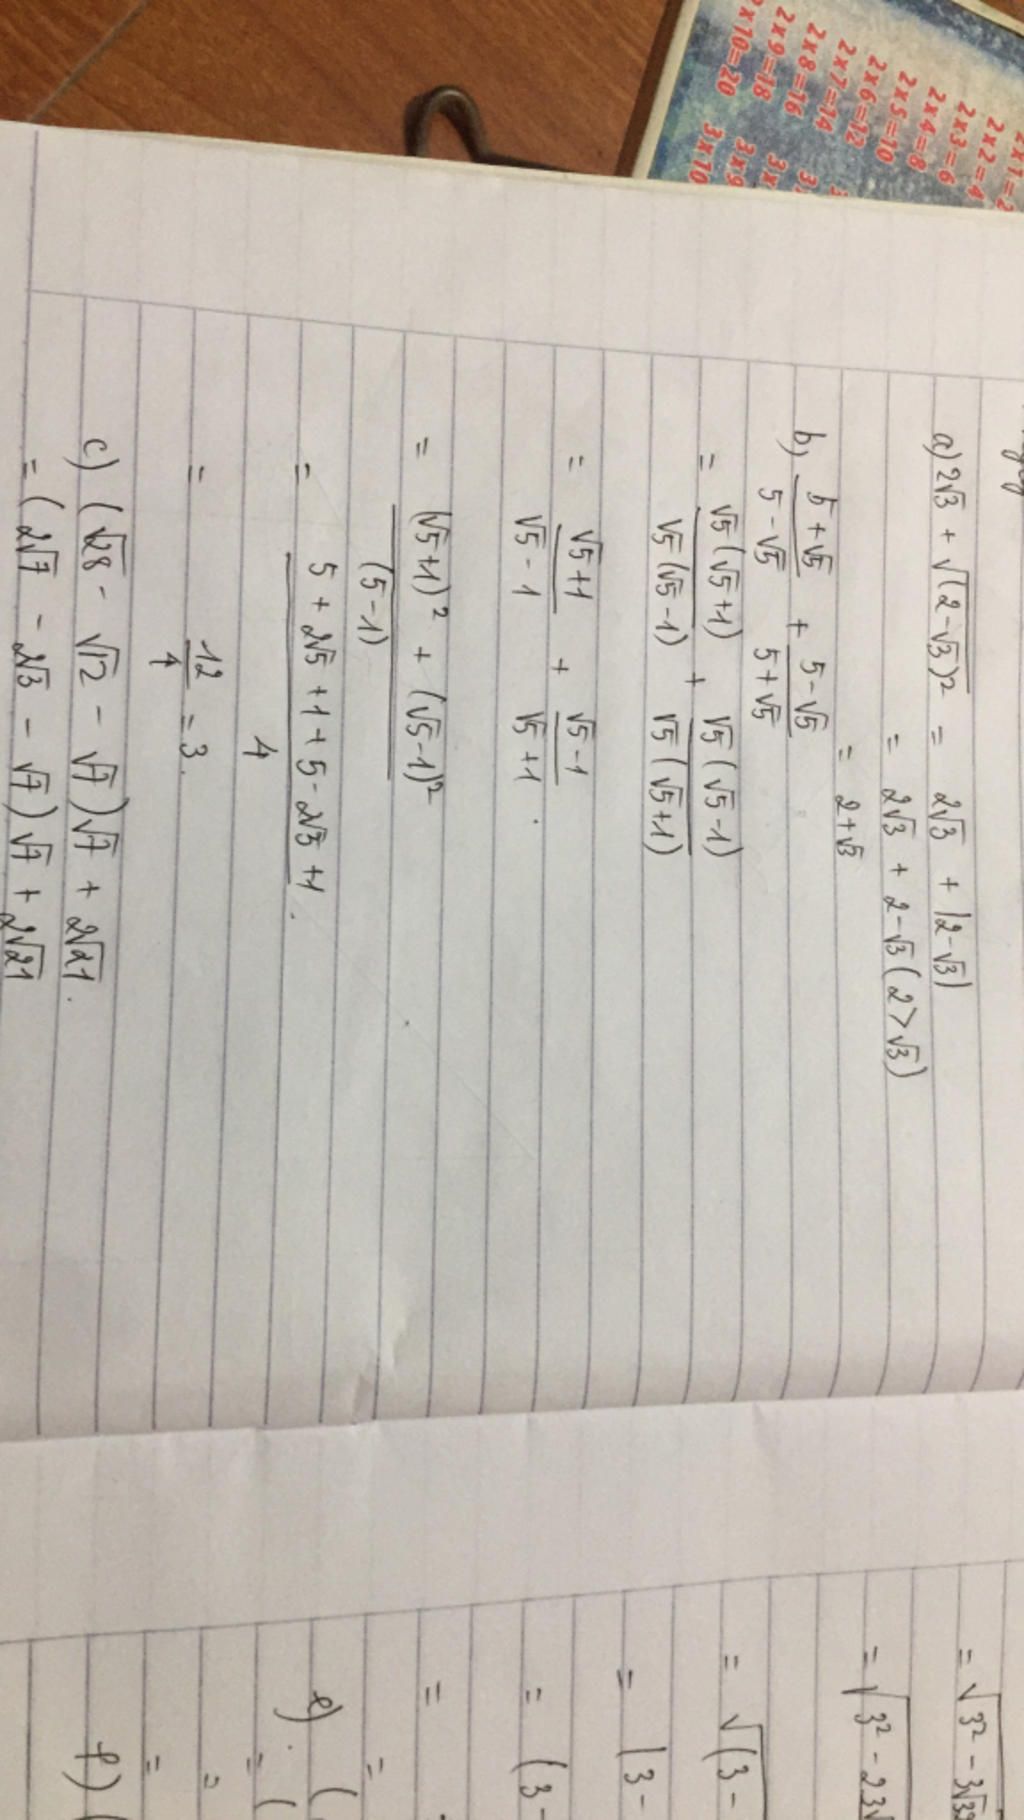 2x1=2
2x2=4
2x3=6
2x4=8
2x5=10
2x6=12
2x7=14
2x8=16
2x9=18
2x10=20
3x9
3x10
a) 2√3 + √(2-√3)² = 2√3 + |2-√3|
= 2√3 + 2-√3 (2>√3)
= 2+√3
b) (5+√5)/(5-√5) + (5-√5)/(5+√5)
= √5(√5+1)/√5(√5-1) + √5(√5-1)/√5(√5+1)
= (√5+1)/(√5-1) + (√5-1)/(√5+1).
= ((√5+1)² + (√5-1)²)/(5-1)
= (5+2√5+1+5-2√5+1)/4.
= 12/4 = 3.
c) (√28 - √12 - √7)√7 + 2√21.
= (2√7 - 2√3 - √7)√7 + 2√21
= √3² -
= √3² -
= √(3-
= |3-
= (3-
=
=
e) (
= (
=
=
f) (